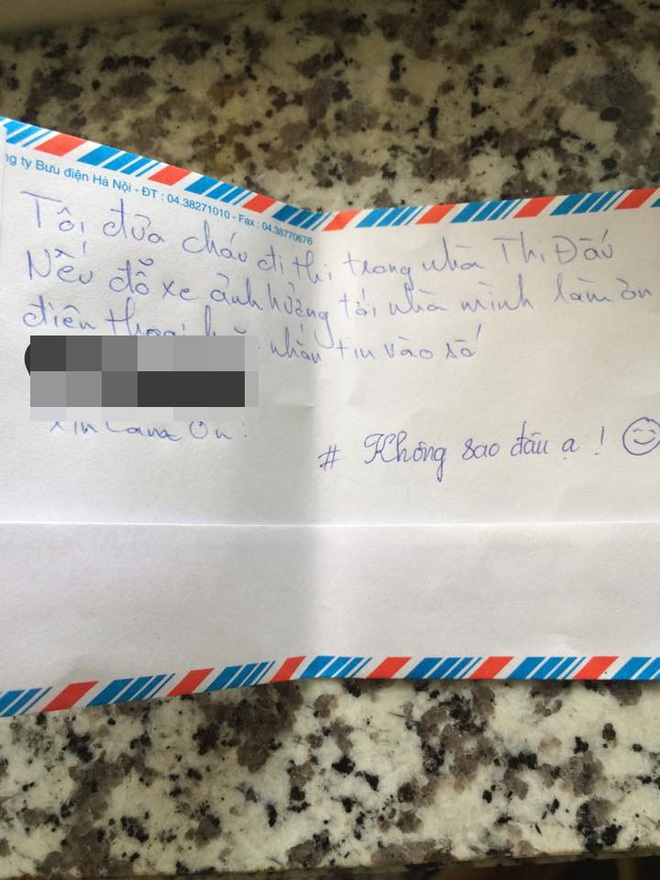 ng ty Bưu điện Hà Nội - ĐT : 04.38271010 - Fax : 04.38770676
Tôi đưa cháu đi thi trong nhà Thi Đấu
Nếu đỗ xe ảnh hưởng tới nhà mình làm ơn
điện thoại nhắn tin vào số
Xin cảm ơn!
# Không sao đâu ạ !